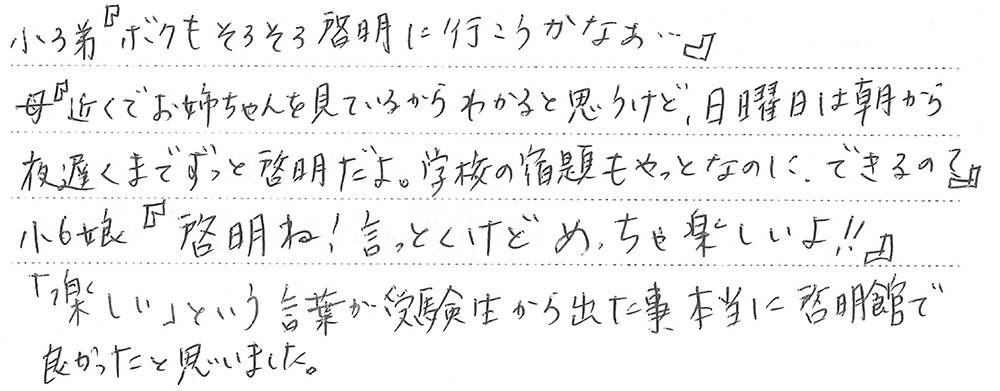 小3弟『ボクもそろそろ啓明に行こうかなぁ…』
母『近くでお姉ちゃんを見ているからわかると思うけど、日曜日は朝から
夜遅くまでずっと啓明だよ。学校の宿題もやっとなのに、できるの?』
小6娘『啓明ね!言っとくけどめっちゃ楽しいよ!!』
「楽しい」という言葉が受験生から出た事、本当に啓明館で
良かったと思いました。